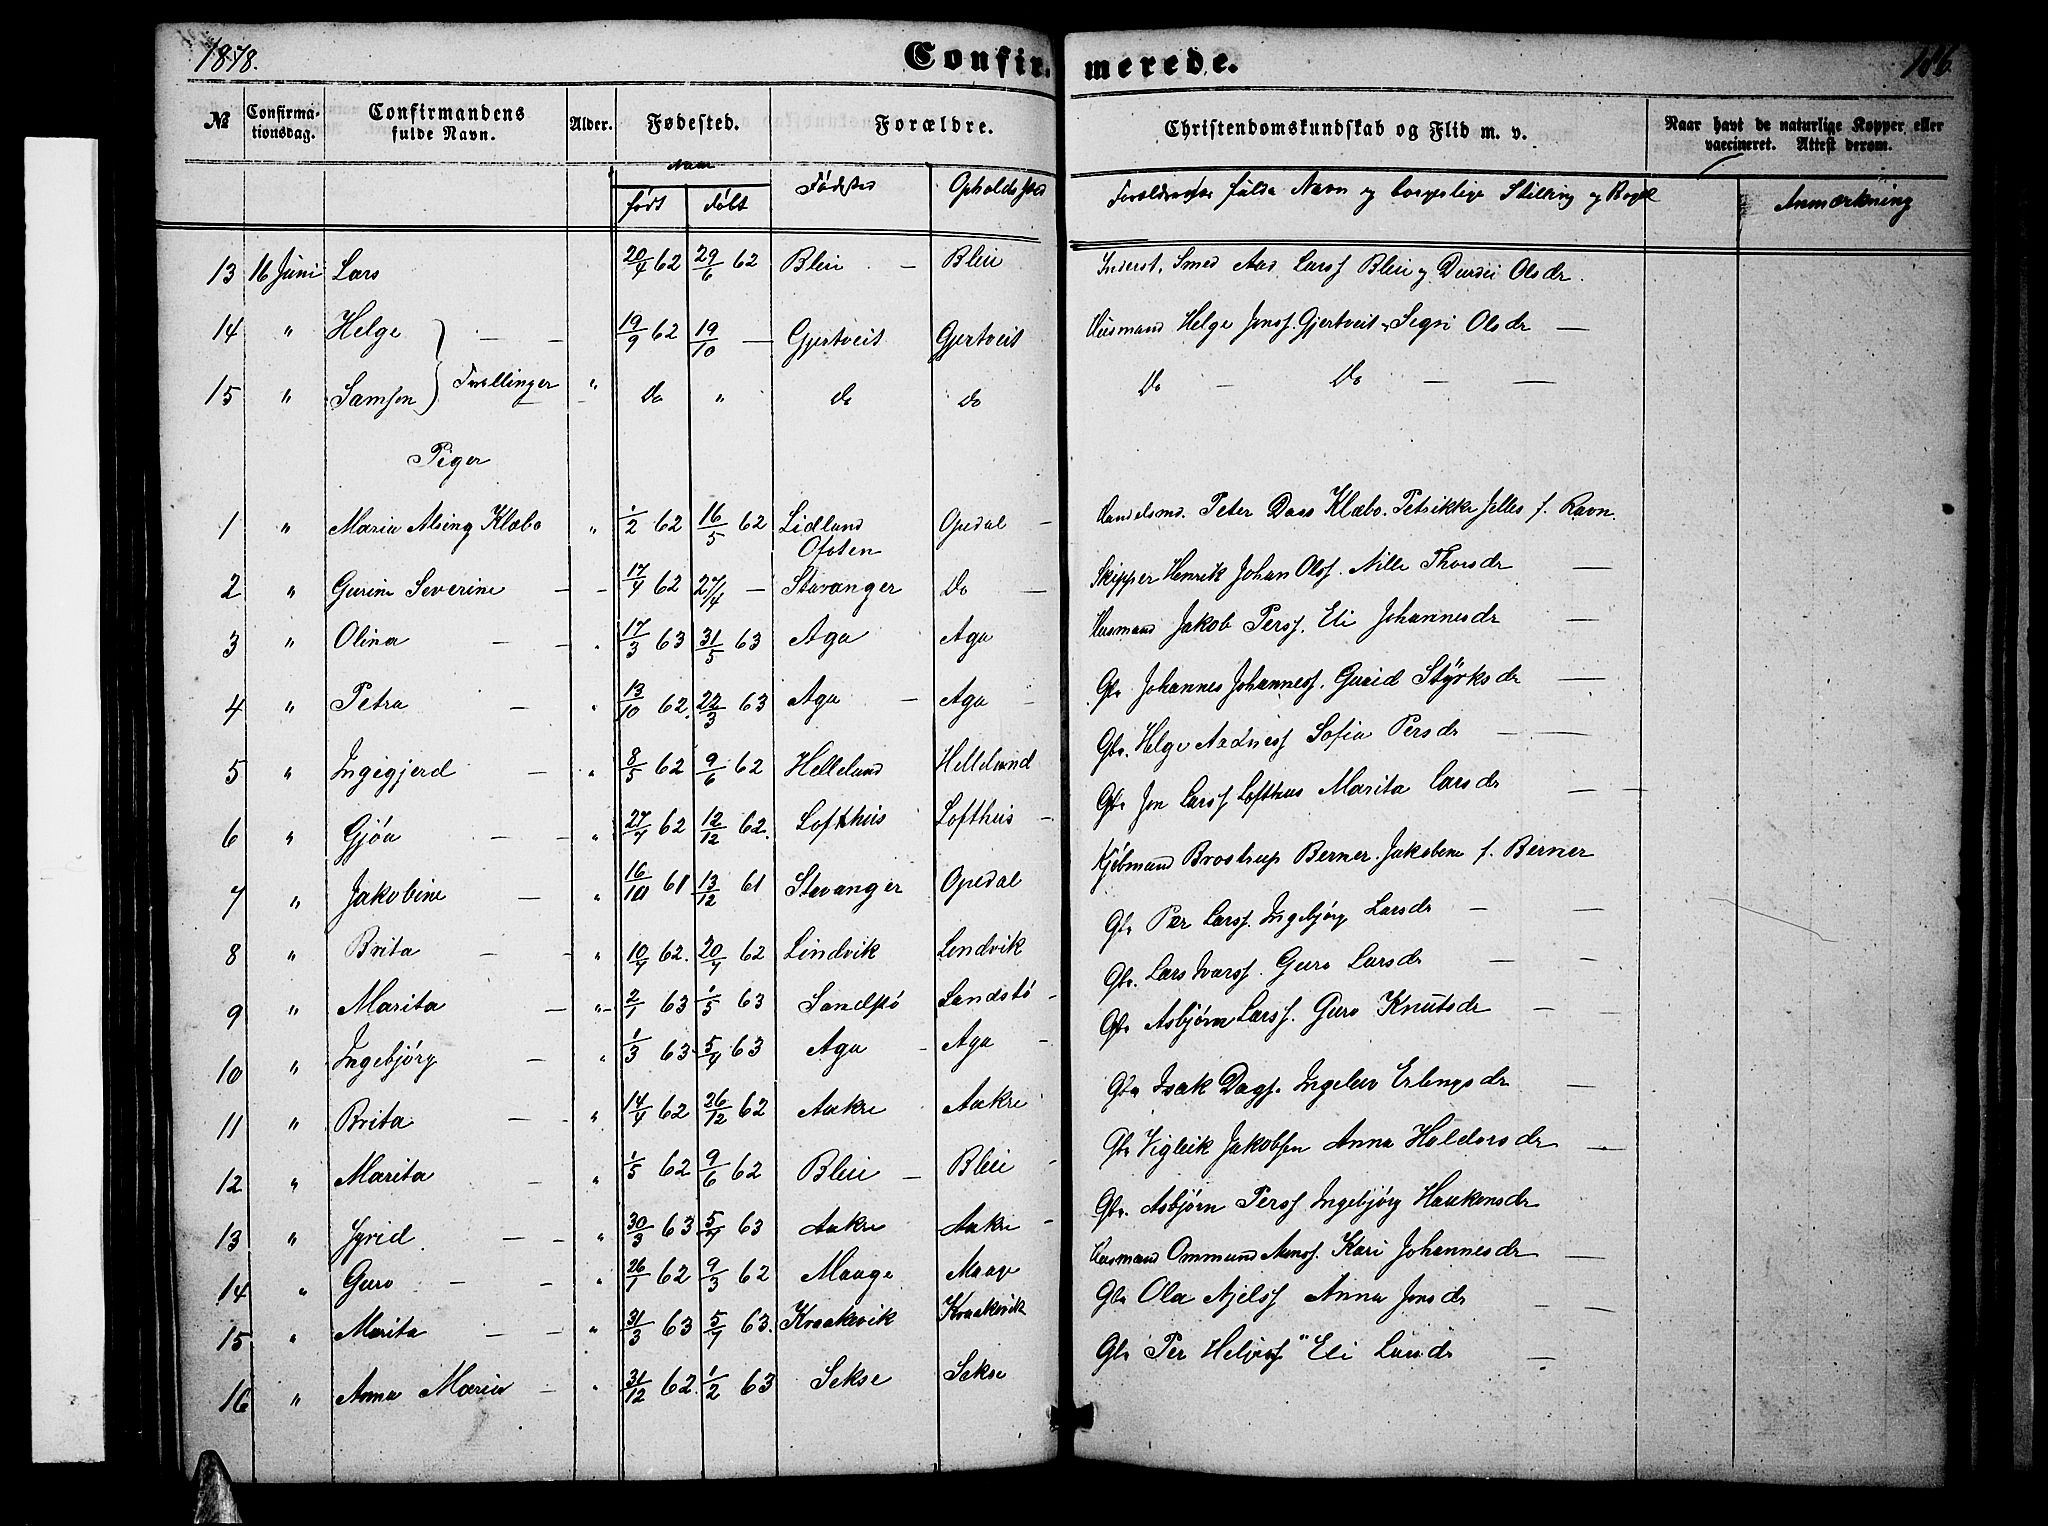 1878. Confirmerede. 186
№ Confirmationsdag. Confirmandens fulde Navn. Alder. Fødested. Forældre. Christendomskundskab og Flid m. v. Naar havt de naturlige Kopper eller vaccineret. Attest derom.
Naar født døbt Fødsted Opholdssted Forældrenes fulde Navn og borgerlige Stilling og Bopæl Anmærkning
13 16 Juni Lars 20/4 62 29/6 62 Bleie — Bleie Inderst, Smed Aad Larss Bleie og Durdei Olsdr.
14 " Helge — — 19/9 62 19/10 — Gjertveit Gjertveit Husmand Helge Jonss. Gjertveit Segri Olsdr —
15 " Samson } Tvillinger " Do " do do Do — Do — —
Piger
1 " Maria Alsing Klæbo " 1/2 62 16/5 62 Lidland Ofoten Opedal — Handelsmd. Peter Dass Klæbo. Petrikke Jelles f. Ravn.
2 " Gurine Severine — — 17/4 62 27/4 — Stavanger Do — Skipper Henrik Johan Olss. Nille Thorsdr —
3 " Olina — — " 17/3 63 31/5 63 Aga Aga Husmand Jakob Perss. Eli Johannesdr —
4 " Petra — " 13/10 62. 22/3 63 Aga — Aga — Gbr. Johannes Johanness. Gurid Styrksdr —
5 " Ingigjerd — " 8/5 62 9/6 62 Helleland Helleland Gbr. Helge Aadness Sofia Persdr — —
6 " Gjøa — " 27/7 62 12/12 62. Lofthus Lofthus — Gbr Jon Larss Lofthus Marita Larsdr — —
7 " Jakobine — " 16/10 61 13/12 61 Stavanger Opedal Kjøbmand Brostrup Berner. Jakobine f. Berner
8 " Brita — — " 10/7 62. 20/7 62 Lindvik Lindvik Gbr Per Larss. Ingebjørg Larsdr — —
9 " Marita — " — 2/1 63 1/5 63 Sandstø Sandstø — Gbr. Lars Ivarss. Guro Larsdr — —
10 " Ingebjørg — " 1/3 63 5/7 63 Aga — Aga — Gbr Asbjørn Larss. Guro Knutsdr — —
11 " Brita — " 14/4 62 26/12 62 Aakre — Aakre Gbr Isak Dags. Ingelev Erlingsdr —
12 " Marita — " 1/5 62 9/6 62 Bleie — Bleie — Gbr Vigleik Jakobsen Anna Haldorsdr —
13 " Syrid. — — " 30/3 63 5/7 63 Aakre Aakre — Gbr. Asbjørn Perss Ingebjørg Haakonsdr
14 " Guro — — " 26/1 62 9/3 62 Maage Maage Husmand Ommund Arness. Kari Johannesdr —
15 " Marita — — " 31/3 63 5/7 63. Kraakevik Kraakevik Gbr Ola Ajelss Anna Jonsdr — —
16 " Anna Maria — " 31/12 62. 1/2 63 Sekse Sekse Gbr Per Helges Eli Larsdr —